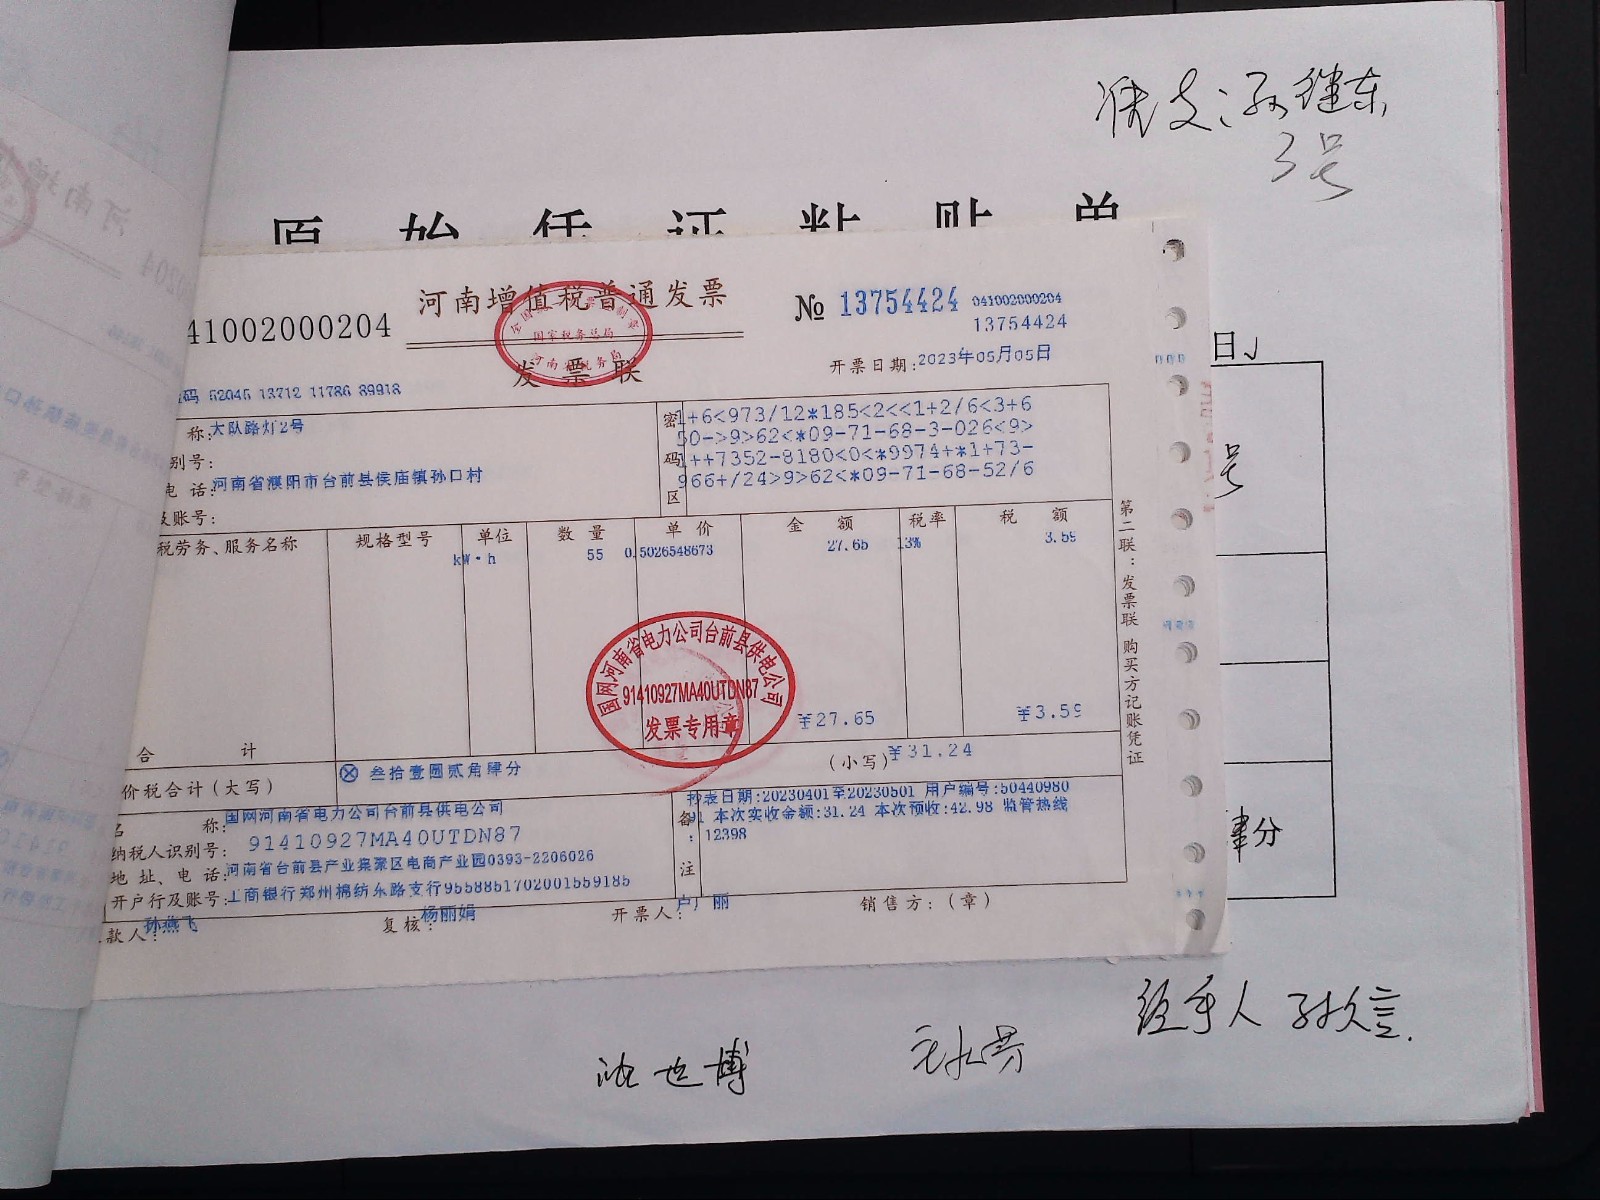 准支:孙继东
3号
原始凭证粘贴单
41002000204
河南增值税普通发票
发票联
全国统一发票监制章
国家税务总局
河南省税务局
№ 13754424
041002000204
13754424
开票日期:2023年05月05日
日
码 52045 13712 11786 89918
称:大队路灯2号
别号:
电话:河南省濮阳市台前县侯庙镇孙口村
及账号:
密码区
1+6<973/12*185<2<<1+2/6<3+6
50->9>62<*09-71-68-3-026<9>
1++7352-8180<0<*9974+*1+73-
966+/24>9>62<*09-71-68-52/6
号
税劳务、服务名称 规格型号 单位 数量 单价 金额 税率 税额
kW·h 55 0.5026548673 27.65 13% 3.59
国网河南省电力公司台前县供电公司
91410927MA40UTDN87
发票专用章
合计 ¥27.65 ¥3.59
价税合计(大写) ⊗ 叁拾壹圆贰角肆分 (小写)¥31.24
名称:国网河南省电力公司台前县供电公司
纳税人识别号:91410927MA40UTDN87
地址、电话:河南省台前县产业集聚区电商产业园0393-2206026
开户行及账号:工商银行郑州棉纺东路支行9558851702001559185
备注
抄表日期:20230401至20230501 用户编号:50440980
91 本次实收金额:31.24 本次预收:42.98 监管热线
:12398
款人:孙燕飞 复核:杨丽娟 开票人: 丽 销售方:(章)
第二联:发票联 购买方记账凭证
肆分
经手人 孙久言.
沈世博